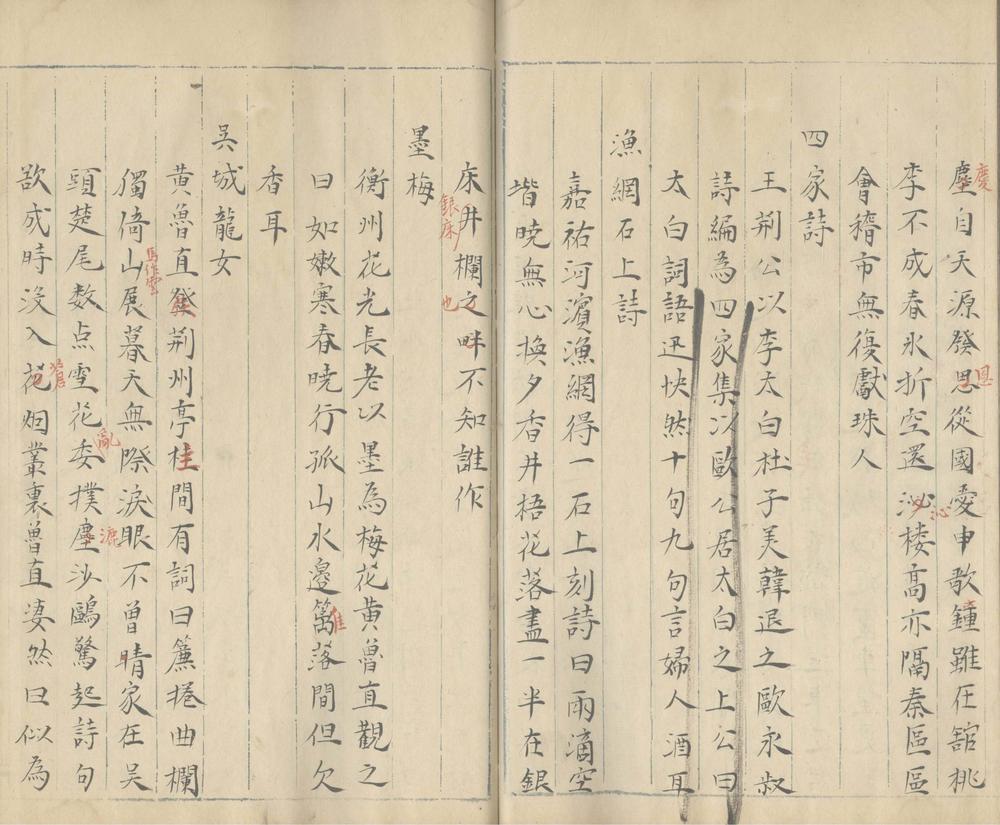 塵自天源發思從國愛申歌鍾雖在舘桃
慶
恩
李不成春氷折空還泌楼高亦隔秦區區
沁
會稽市無復獻珠人
四家詩
王荆公以李太白杜子美韓退之歐永叔
詩編為四家集以歐公居太白之上公曰
太白詞語迅快然十句九句言婦人酒耳
漁網石上詩
嘉祐河濱漁網得一石上刻詩曰雨滴空
堦曉無心換夕香井梧花落盡一半在銀
床井欄之畔不知誰作
銀床
也
墨梅
衡州花光長老以墨為梅花黄魯直觀之
曰如嫩寒春曉行孤山水邊篱落間但欠
香耳
吳城龍女
黄魯直發荆州亭柱間有詞曰簾捲曲欄
獨倚山展暮天無際淚眼不曾晴家在吳
頭楚尾数点雪花委撲塵沙鷗驚起詩句
亂
漉
欲成時没入花烟叢裏魯直凄然曰似為